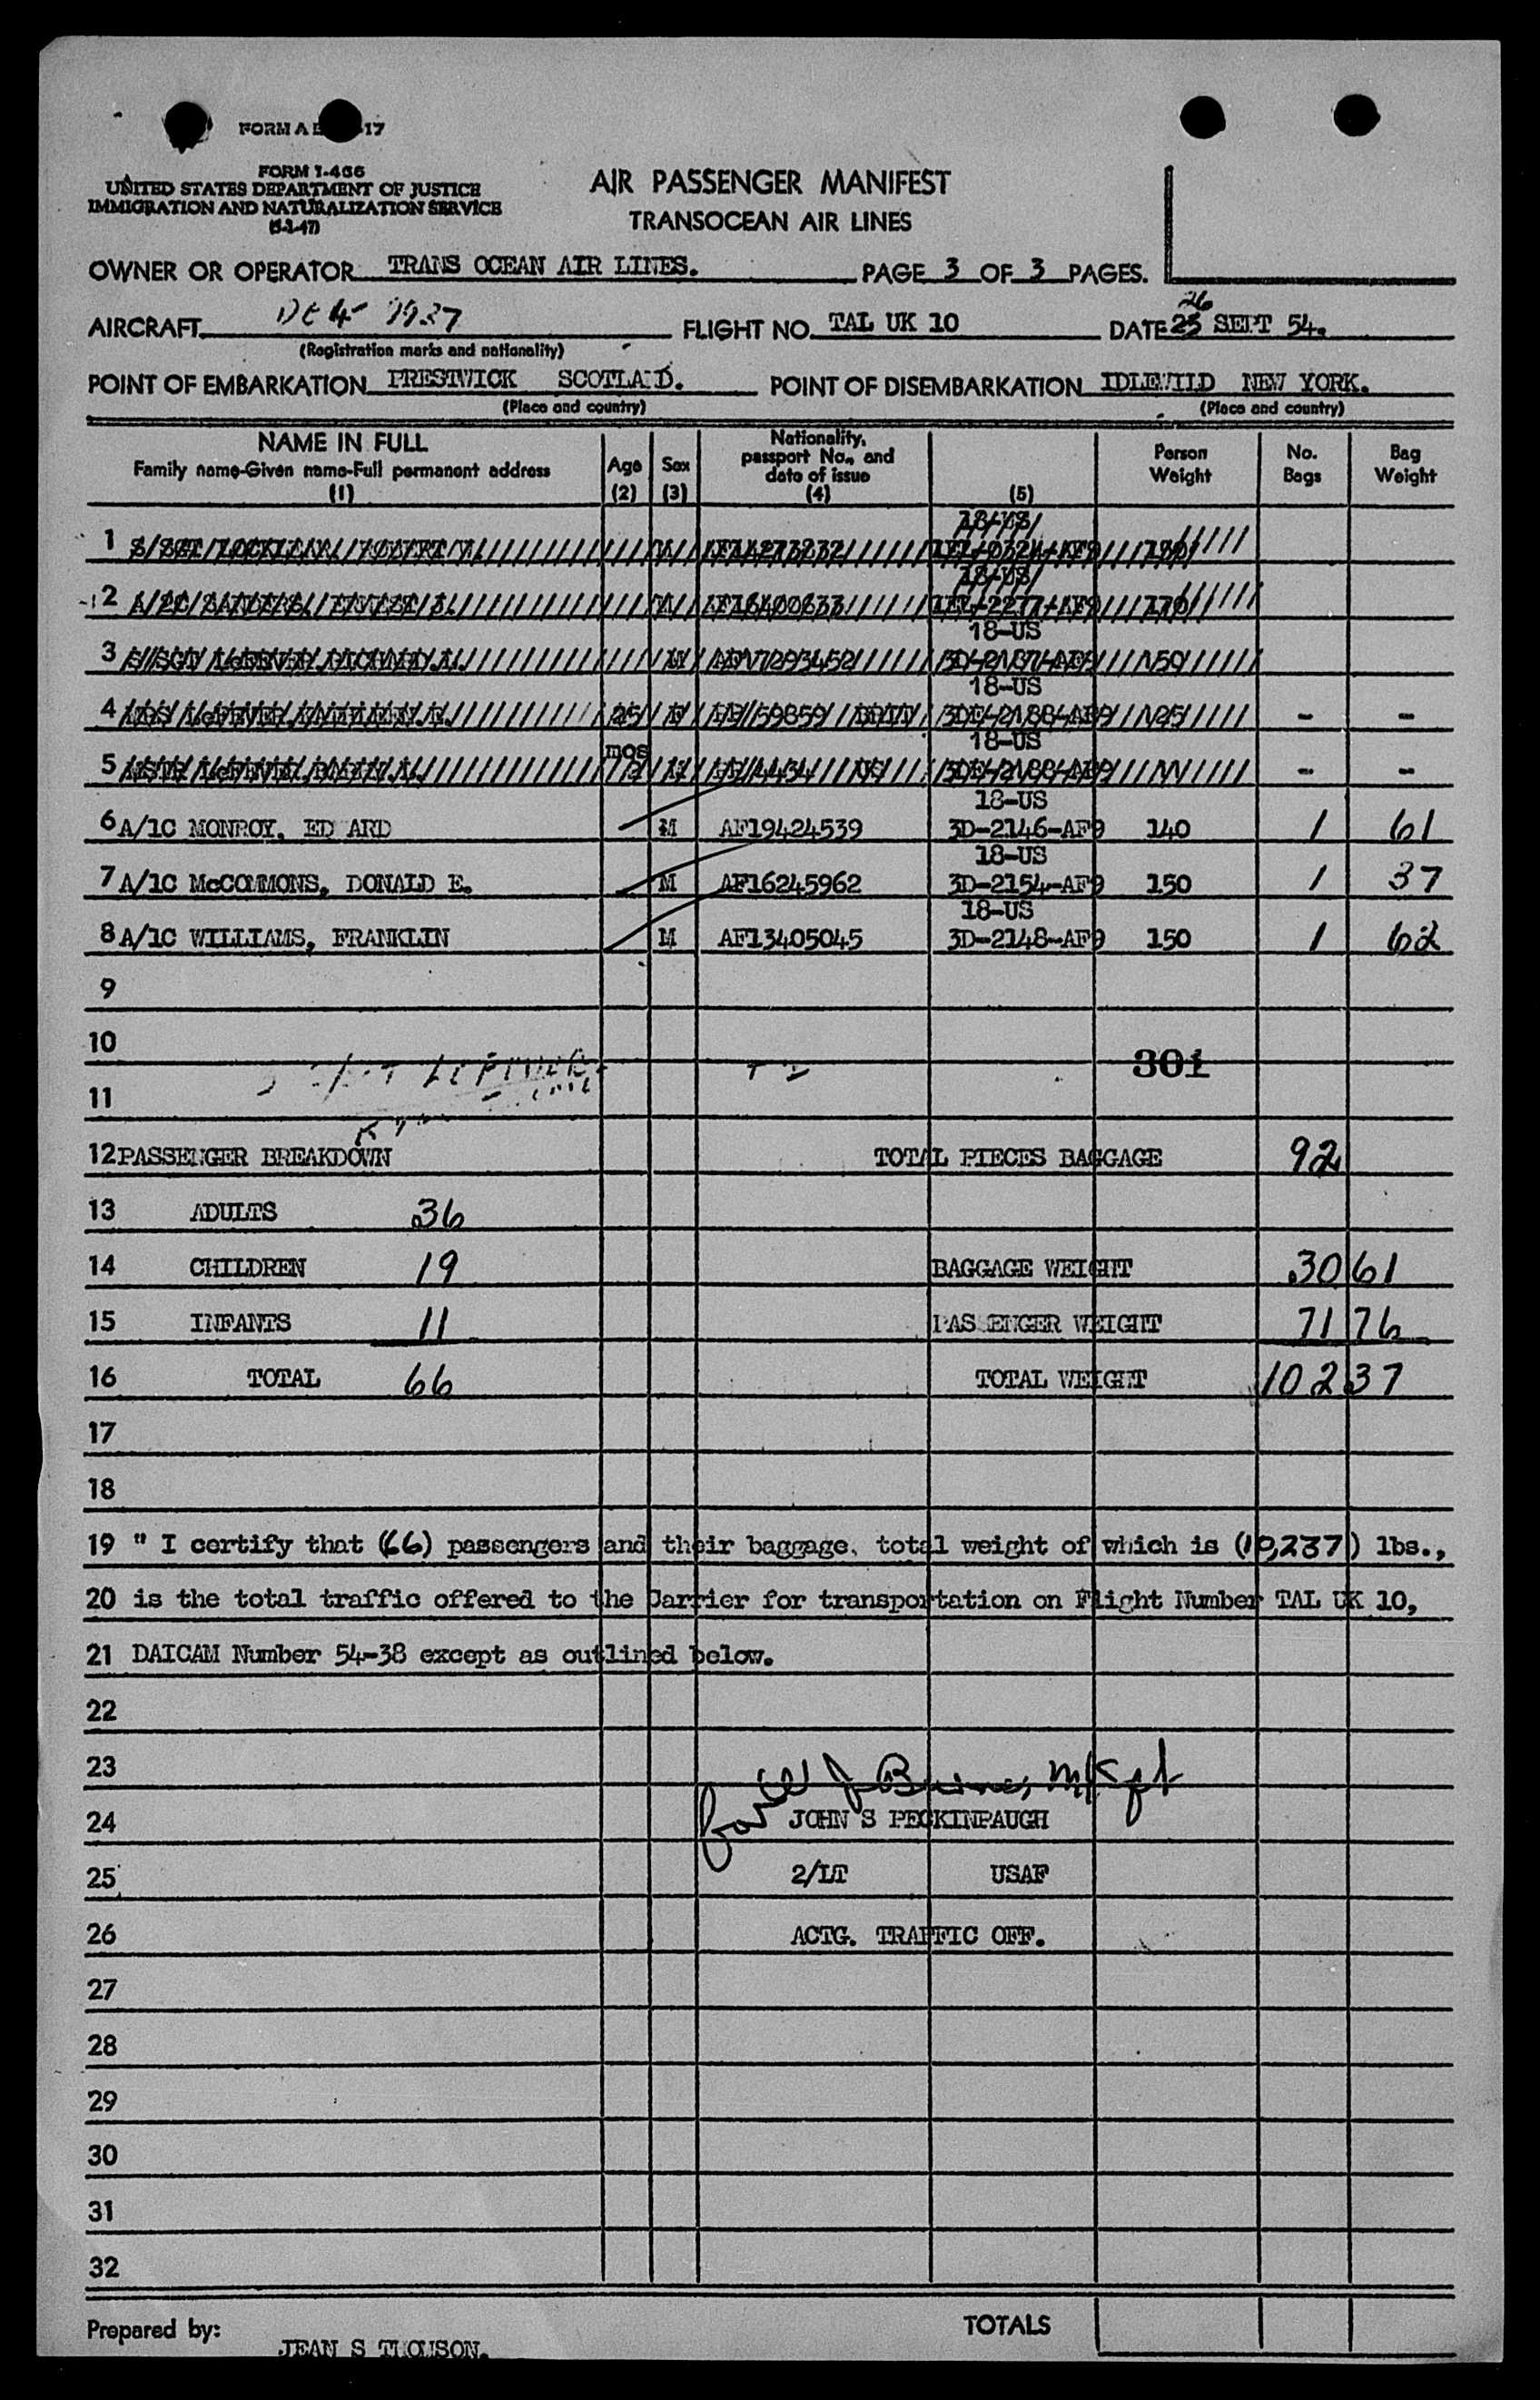 FORM 1-466
UNITED STATES DEPARTMENT OF JUSTICE
IMMIGRATION AND NATURALIZATION SERVICE
AIR PASSENGER MANIFEST
TRANSOCEAN AIR LINES
OWNER OR OPERATOR TRANS OCEAN AIR LINES. PAGE 3 OF 3 PAGES.
AIRCRAFT FLIGHT NO. TAL UK 10 DATE 26 25 SEPT 54.
(Registration marks and nationality)
POINT OF EMBARKATION PRESTWICK SCOTLA D. POINT OF DISEMBARKATION IDLEWILD NEW YORK.
(Place and country) (Place and country)
NAME IN FULL Family name-Given name-Full permanent address (1) Age (2) Sex (3) Nationality, passport No., and date of issue (4) (5) Person Weight No. Bags Bag Weight
1 AF14273232
2 AF16400633
18-US
3 150
18-US
4 25 F 59859 125 - -
mos 18-US
5 - -
18-US
6 A/1C MONROY, ED ARD M AF19424539 3D-2146-AF9 140 1 61
18-US
7 A/1C McCOMMONS, DONALD E. M AF16245962 3D-2154-AF9 150 1 37
18-US
8 A/1C WILLIAMS, FRANKLIN M AF13405045 3D-2148-AF9 150 1 62
9
10
301
11
12 PASSENGER BREAKDOWN TOTAL PIECES BAGGAGE 92
13 ADULTS 36
14 CHILDREN 19 BAGGAGE WEIGHT 3061
15 INFANTS 11 PAS ENGER WEIGHT 7176
16 TOTAL 66 TOTAL WEIGHT 10237
17
18
19 " I certify that (66) passengers and their baggage, total weight of which is (10,237) lbs.,
20 is the total traffic offered to the Carrier for transportation on Flight Number TAL UK 10,
21 DAICAM Number 54-38 except as outlined below.
22
23
24 for JOHN S PECKINPAUGH
25 2/LT USAF
26 ACTG. TRAFFIC OFF.
27
28
29
30
31
32
Prepared by: JEAN S THOMSON. TOTALS